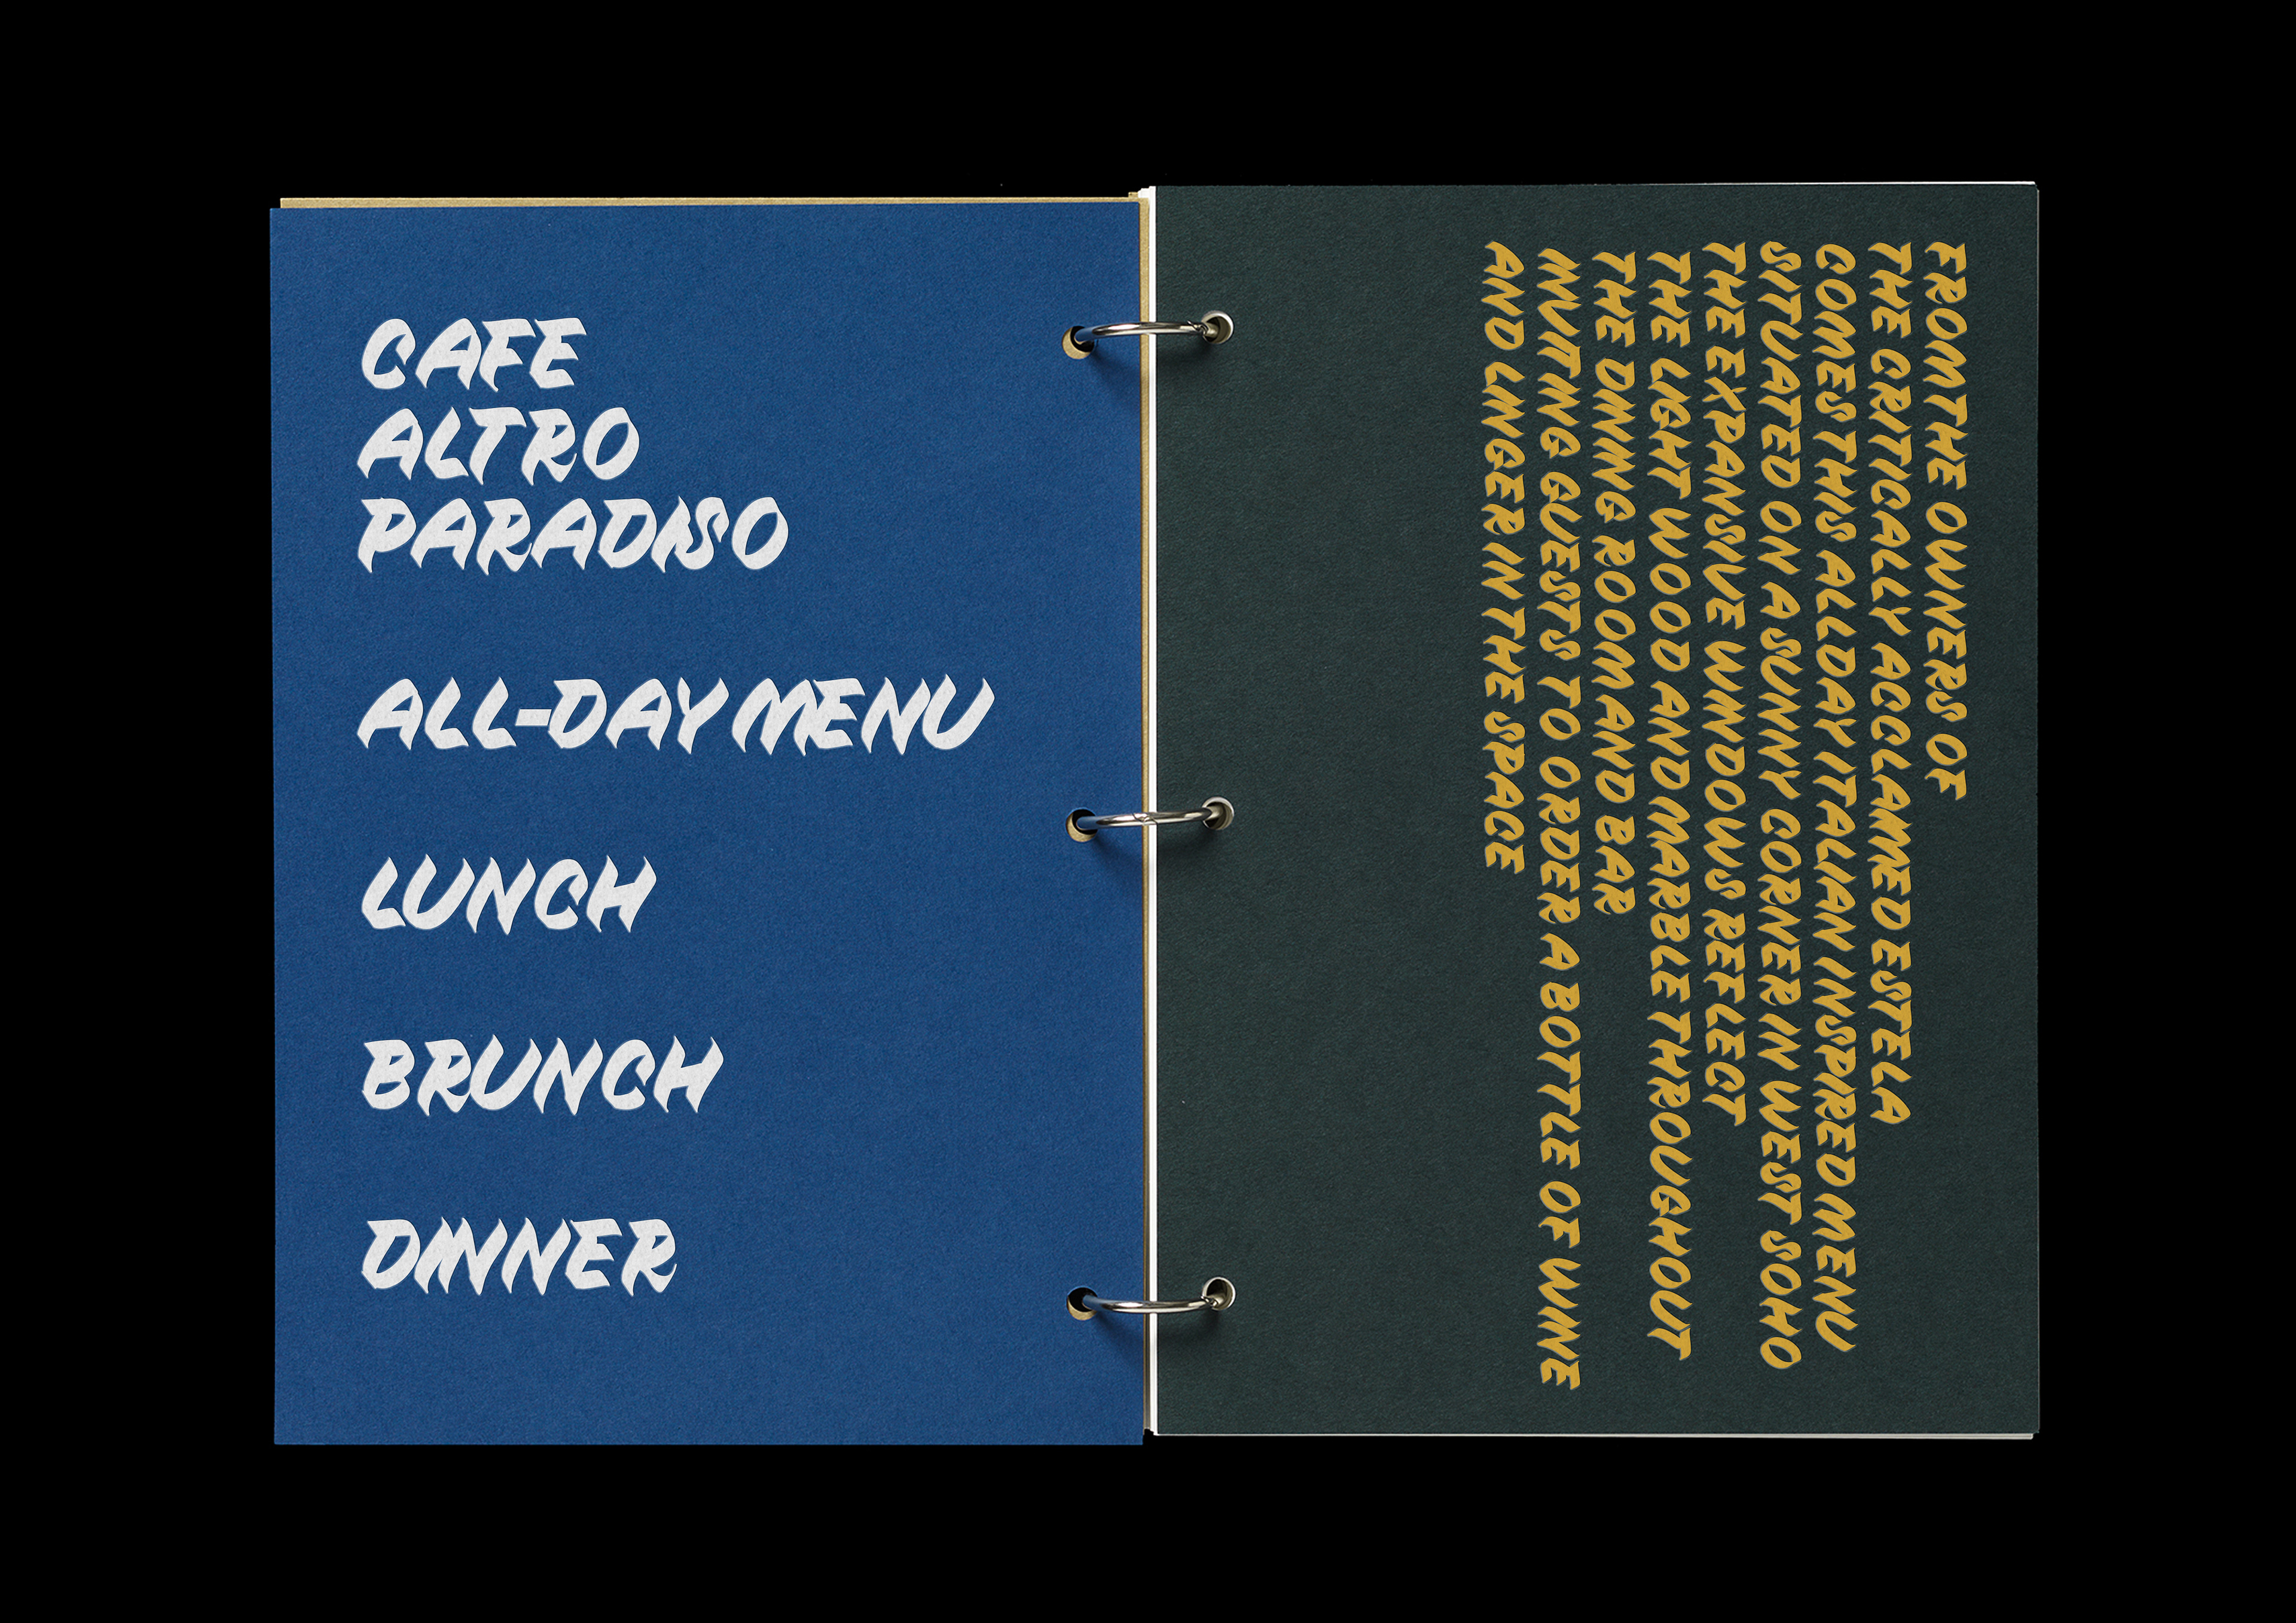 CAFE
ALTRO
PARADISO
ALL-DAY MENU
LUNCH
BRUNCH
DINNER
FROM THE OWNERS OF
THE CRITICALLY ACCLAIMED ESTELA
COMES THIS ALL DAY ITALIAN INSPIRED MENU
SITUATED ON A SUNNY CORNER IN WEST SOHO
THE EXPANSIVE WINDOWS REFLECT
THE LIGHT WOOD AND MARBLE THROUGHOUT
THE DINING ROOM AND BAR
INVITING GUESTS TO ORDER A BOTTLE OF WINE
AND LINGER IN THE SPACE